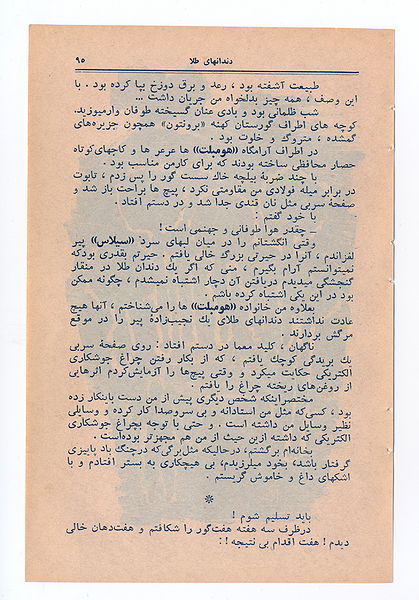 دندانهای طلا
۹۵
طبیعت آشفته بود ، رعد و برق دوزخ بپا کرده بود . با
این وصف ، همه چیز بدلخواه من جریان داشت ...
شب ظلمانی بود و بادی عنان گسیخته طوفان وارمیوزید.
کوچه های اطراف گورستان کهنه «بروتنون» همچون جزیره‌های
گمشده ، متروك و خلوت بود .
در اطراف آرامگاه «هومپلت» ها عرعر ها و کاجهای‌کوتاه
حصار محافظی ساخته بودند که برای کارمن مناسب بود .
با چند ضربهٔ بیلچه خاك سست گور را پس زدم ، تابوت
در برابر میله فولادی من مقاومتی نکرد ، پیچ ها براحت باز شد و
صفحهٔ سربی مثل نان قندی جدا شد و در دستم افتاد .
با خود گفتم :
ــ چقدر هوا طوفانی و جهنمی است !
وقتی انگشتانم را در میان لبهای سرد «سیلاس» پیر
لغزاندم ، آنرا در حیرتی بزرگ خالی یافتم . حیرتم بقدری بودکه
نمیتوانستم آرام بگیرم ، منی که اگر یك دندان طلا در منقار
گنجشکی میدیدم دریافتن آن دچار اشتباه نمیشدم ، چگونه ممکن
بود در این یکی اشتباه کرده باشم .
بعلاوه من خانواده «هومپلت» ها را می‌شناختم ، آنها هیچ
عادت نداشتند دندانهای طلای یك نجیب‌زادهٔ پیر را در موقع
مرگش بردارند .
ناگهان ، کلید معما در دستم افتاد : روی صفحهٔ سربی
یك بریدگی کوچك یافتم ، که از بکار رفتن چراغ جوشکاری
الکتریکی حکایت میکرد و وقتی پیچ‌ها را آزمایش‌کردم اثرهایی
از روغن‌های ریخته چراغ را یافتم .
مختصراینکه شخص دیگری پیش از من دست باینکار زده
بود ، کسی‌که مثل من استادانه و بی سروصدا کار کرده و وسایلی
نظیر وسایل من داشته است . و حتی با توجه بچراغ جوشکاری
الکتریکی که داشته ازین حیث از من هم مجهزتر بوده‌است .
بخانه‌ام برگشتم ، درحالیکه مثل‌برگی‌که درچنگ باد پاییزی
گرفتار باشد، بخود میلرزیدم، بی هیچکاری به بستر افتادم و با
اشکهای داغ و خاموش گریستم .
*
باید تسلیم شوم !
درظرف سه هفته هفت‌گور را شکافتم و هفت‌دهان خالی
دیدم ! هفت اقدام بی نتیجه !: